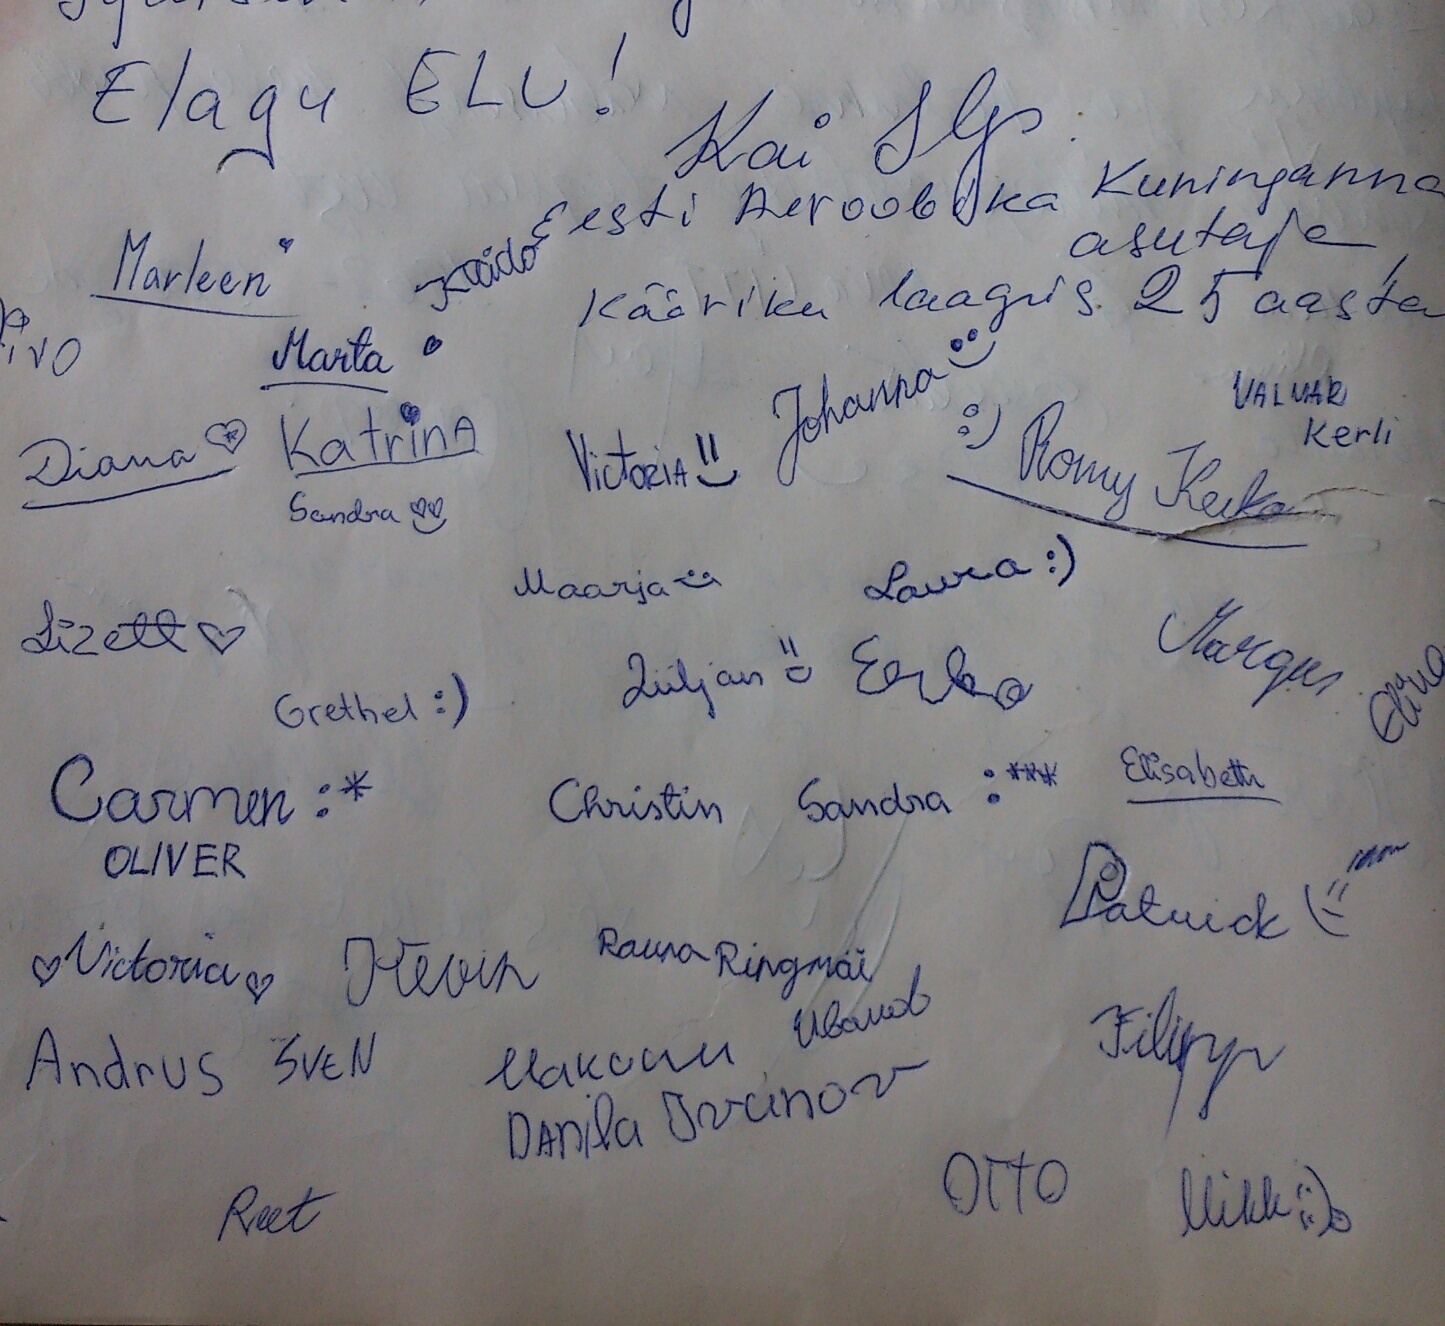 Elagu ELU!
Kai
Eesti Aeroobika Kuninganna
asutaja
Kääriku laagris 25 aastat
Marleen
Kaido
Marta
Johanna
VALMAR
Kerli
Diana
Katrina
Victoria
:)
Romy Keka
Sandra
Maarja
Laura :)
Lizett
Margus
Grethel :)
Züljan
Eerika
Carmen :*
Christin
Sandra :***
Elisabeth
OLIVER
Patrick
Victoria
Kevin
Rauna Ringmäe
Andrus
SVEN
Filipp
Danila Ivanov
OTTO
Mikk :)
Reet